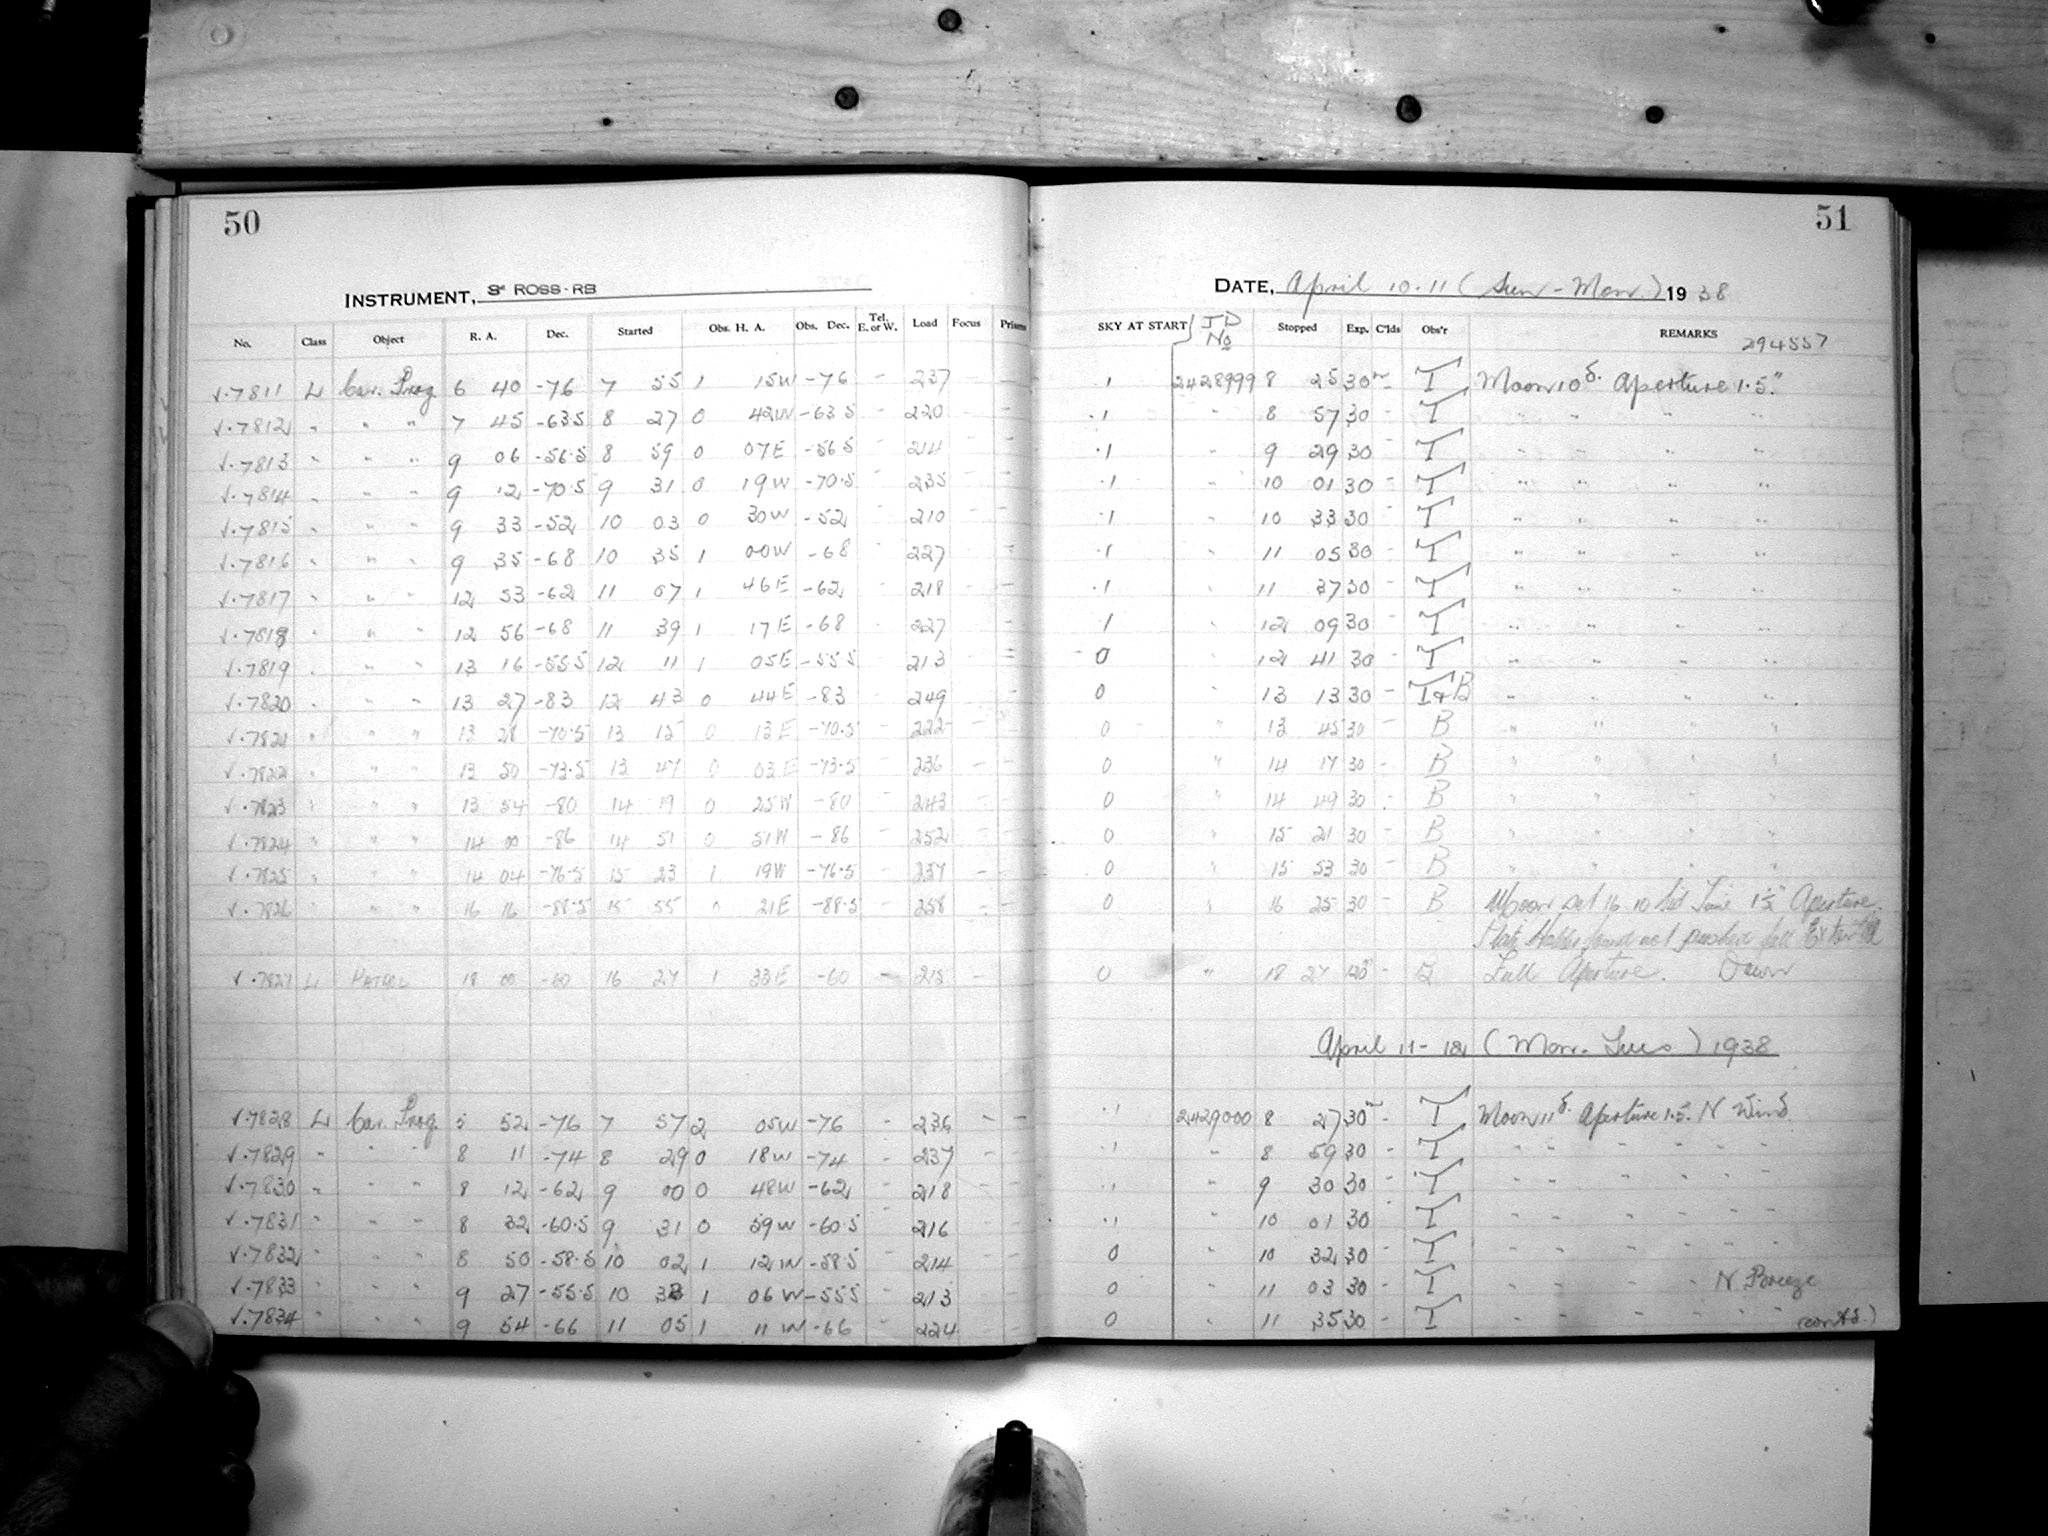 50
INSTRUMENT, 3" ROSS-RB
No. Class Object R. A. Dec. Started Obs. H. A. Obs. Dec. Tel. E. or W. Load Focus Prisms
√.7811 L Car. Prog 6 40 -76 7 55 1 15W -76 - 237
√.7812 " " " 7 45 -63.5 8 27 0 42W -63.5 - 220
√.7813 " " " 9 06 -56.5 8 59 0 07E -56.5 - 214
√.7814 " " " 9 12 -70.5 9 31 0 19W -70.5 - 235
√.7815 " " " 9 33 -52 10 03 0 30W -52 - 210
√.7816 " " " 9 35 -68 10 35 1 00W -68 - 227
√.7817 " " " 12 53 -62 11 07 1 46E -62 - 218
√.7818 " " " 12 56 -68 11 39 1 17E -68 - 227
√.7819 " " " 13 16 -55.5 12 11 1 05E -55.5 - 213
√.7820 " " " 13 27 -83 12 43 0 44E -83 - 249
√.7821 " " " 13 28 -70.5 13 15 0 13E -70.5 - 222
√.7822 " " " 13 50 -73.5 13 47 0 03E -73.5 - 236
√.7823 " " " 13 54 -80 14 19 0 25W -80 - 243
√.7824 " " " 14 00 -86 14 51 0 51W -86 - 252
√.7825 " " " 14 04 -76.5 15 23 1 19W -76.5 - 237
√.7826 " " " 16 16 -88.5 15 55 0 21E -88.5 - 258
√.7827 L PATROL 18 00 -60 16 27 1 33E -60 - 215 -
√.7828 L Car. Prog. 5 52 -76 7 57 2 05W -76 - 236 - -
√.7829 " " " 8 11 -74 8 29 0 18W -74 - 237
√.7830 " " " 8 12 -62 9 00 0 48W -62 - 218
√.7831 " " " 8 32 -60.5 9 31 0 59W -60.5 - 216
√.7832 " " " 8 50 -58.5 10 02 1 12W -58.5 - 214
√.7833 " " " 9 27 -55.5 10 33 1 06W -55.5 - 213
√.7834 " " " 9 54 -66 11 05 1 11W -66 - 224
51
DATE, April 10-11 (Sun-Mon.) 1938
SKY AT START JD No Stopped Exp. C'lds Obs'r REMARKS 294557
.1 2428999 8 25 30m - T Moon 10d. Aperture 1.5"
.1 " 8 57 30 - T " " " "
.1 " 9 29 30 - T " " " "
.1 " 10 01 30 - T " " " "
.1 " 10 33 30 - T " " " "
.1 " 11 05 30 - T " " " "
.1 " 11 37 30 - T " " " "
.1 " 12 09 30 - T " " " "
0 " 12 41 30 - T " " " "
0 " 13 13 30 - T & B " " " "
0 " 13 45 30 - B " " " "
0 " 14 17 30 - B " " " "
0 " 14 49 30 - B " " " "
0 " 15 21 30 - B " " " "
0 " 15 53 30 - B " " " "
0 " 16 25 30 - B Moon set 16 10 Sid Time 1½" Aperture.
Plate Holder found not pushed full
0 " 18 27 120 - B Full Aperture. Dawn
April 11-12 (Mon. Tues) 1938
.1 2429000 8 27 30m - T Moon 11d. Aperture 1.5. N Wind
.1 " 8 59 30 - T " " " " " "
.1 " 9 30 30 - T " " " " " "
.1 " 10 01 30 - T " " " " " "
0 " 10 32 30 - T " " " " " "
0 " 11 03 30 - T " " " " N Breeze
0 " 11 35 30 - T " " " " " "
(contd.)